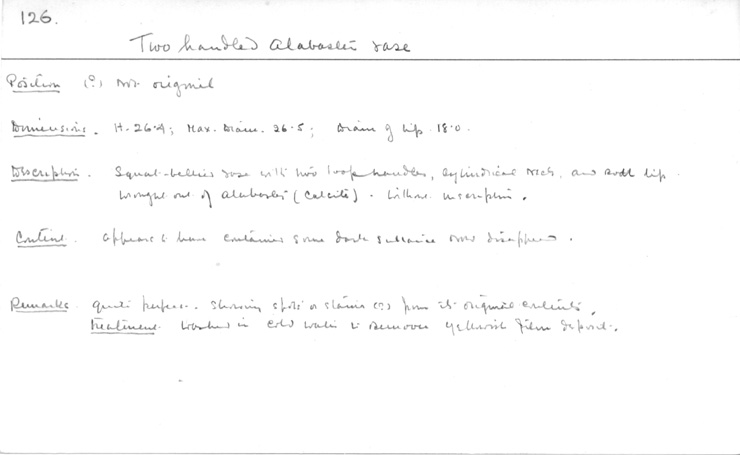 126.
Two handled Alabaster vase
Position (?) Not original
Dimensions. H. 26.4; Max. Diam. 26.5; Diam of lip 18.0.
Description. Squat-bellied vase with two loop handles, cylindrical neck, and lip.
Wrought out of alabaster (calcite). Without inscription.
Content. Appears to have contained some dark substance now disappeared.
Remarks. Quite perfect. Showing spots or stains (?) from its original contents.
Treatment. Washed in cold water to remove yellowish film deposit.